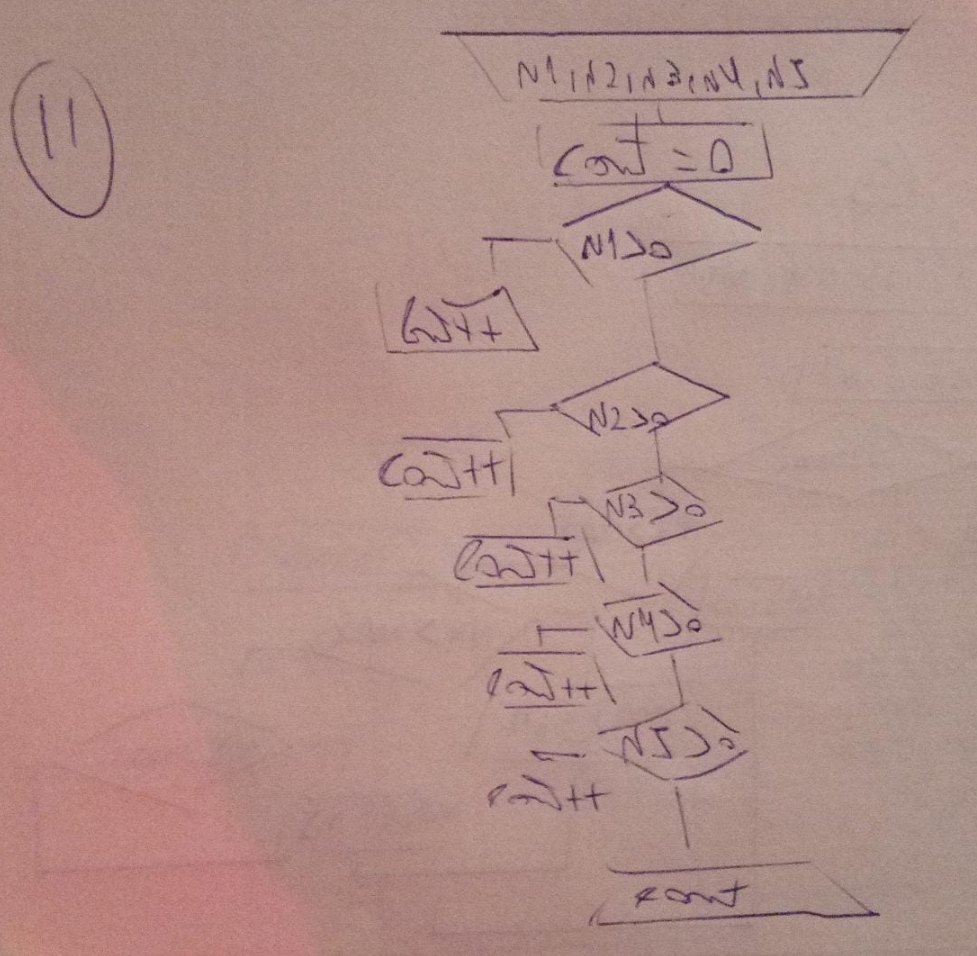 11
N1, N2, N3, N4, N5
Cont = 0
N1>0
Cont++
N2>0
Cont++
N3>0
Cont++
N4>0
Cont++
N5>0
Cont++
cont